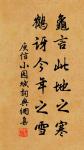 龜言此地之寒
鶴訝今年之雪
庾信小園賦詞典網集